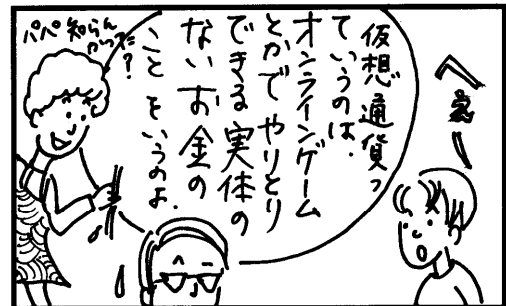 へぇー
仮想通貨っ
ていうのは、
オンラインゲーム
とかでやりとり
できる実体の
ないお金の
ことをいうのよ。
パパ知らん
かった?